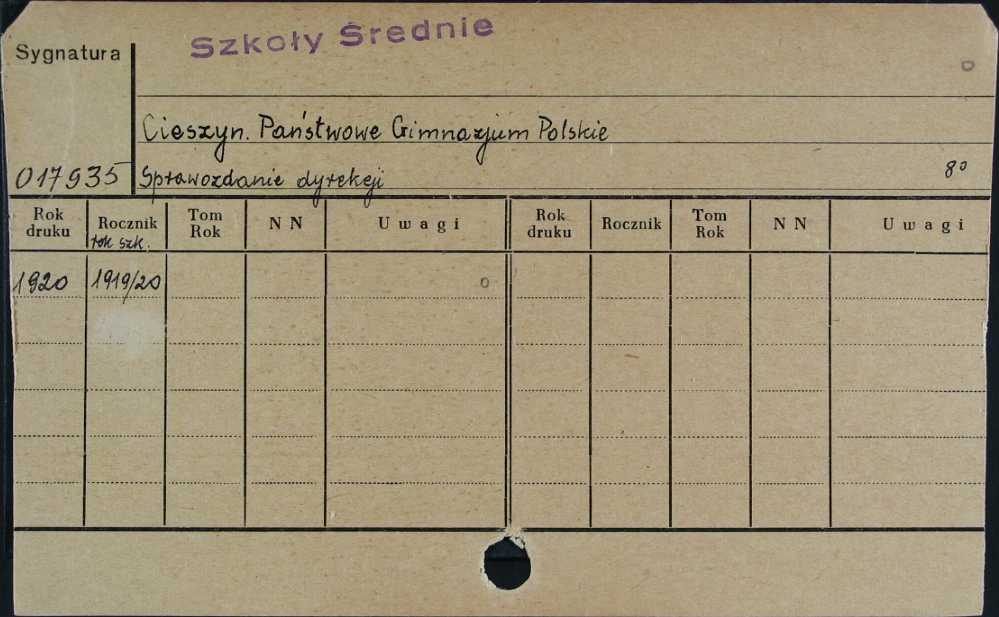 Szkoły Średnie
Sygnatura
Cieszyn. Państwowe Gimnazjum Polskie
017935 Sprawozdanie dyrekcji 8°
Rok druku Rocznik rok szk. Tom Rok N N Uwagi Rok druku Rocznik Tom Rok N N Uwagi
1920 1919/20